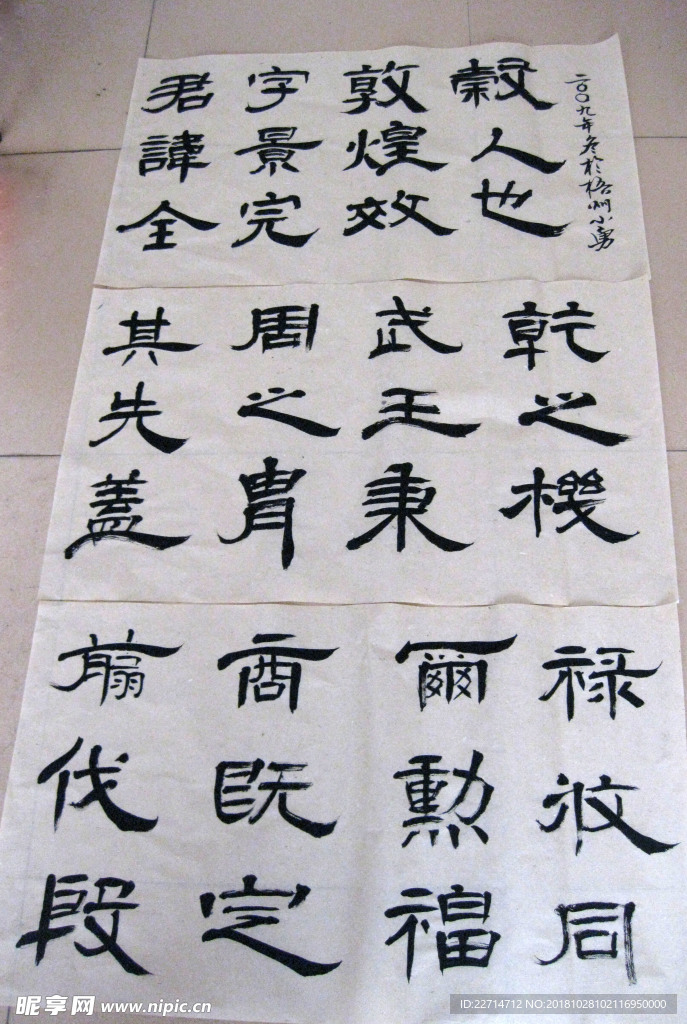 君諱全
字景完
敦煌效
穀人也
二〇〇九年冬於梧州小勇
其先蓋
周之冑
武王秉
乾之機
翦伐殷
商既定
爾勳福
祿攸同
昵享网 www.nipic.cn
ID:22714712 NO:20181028102116950000